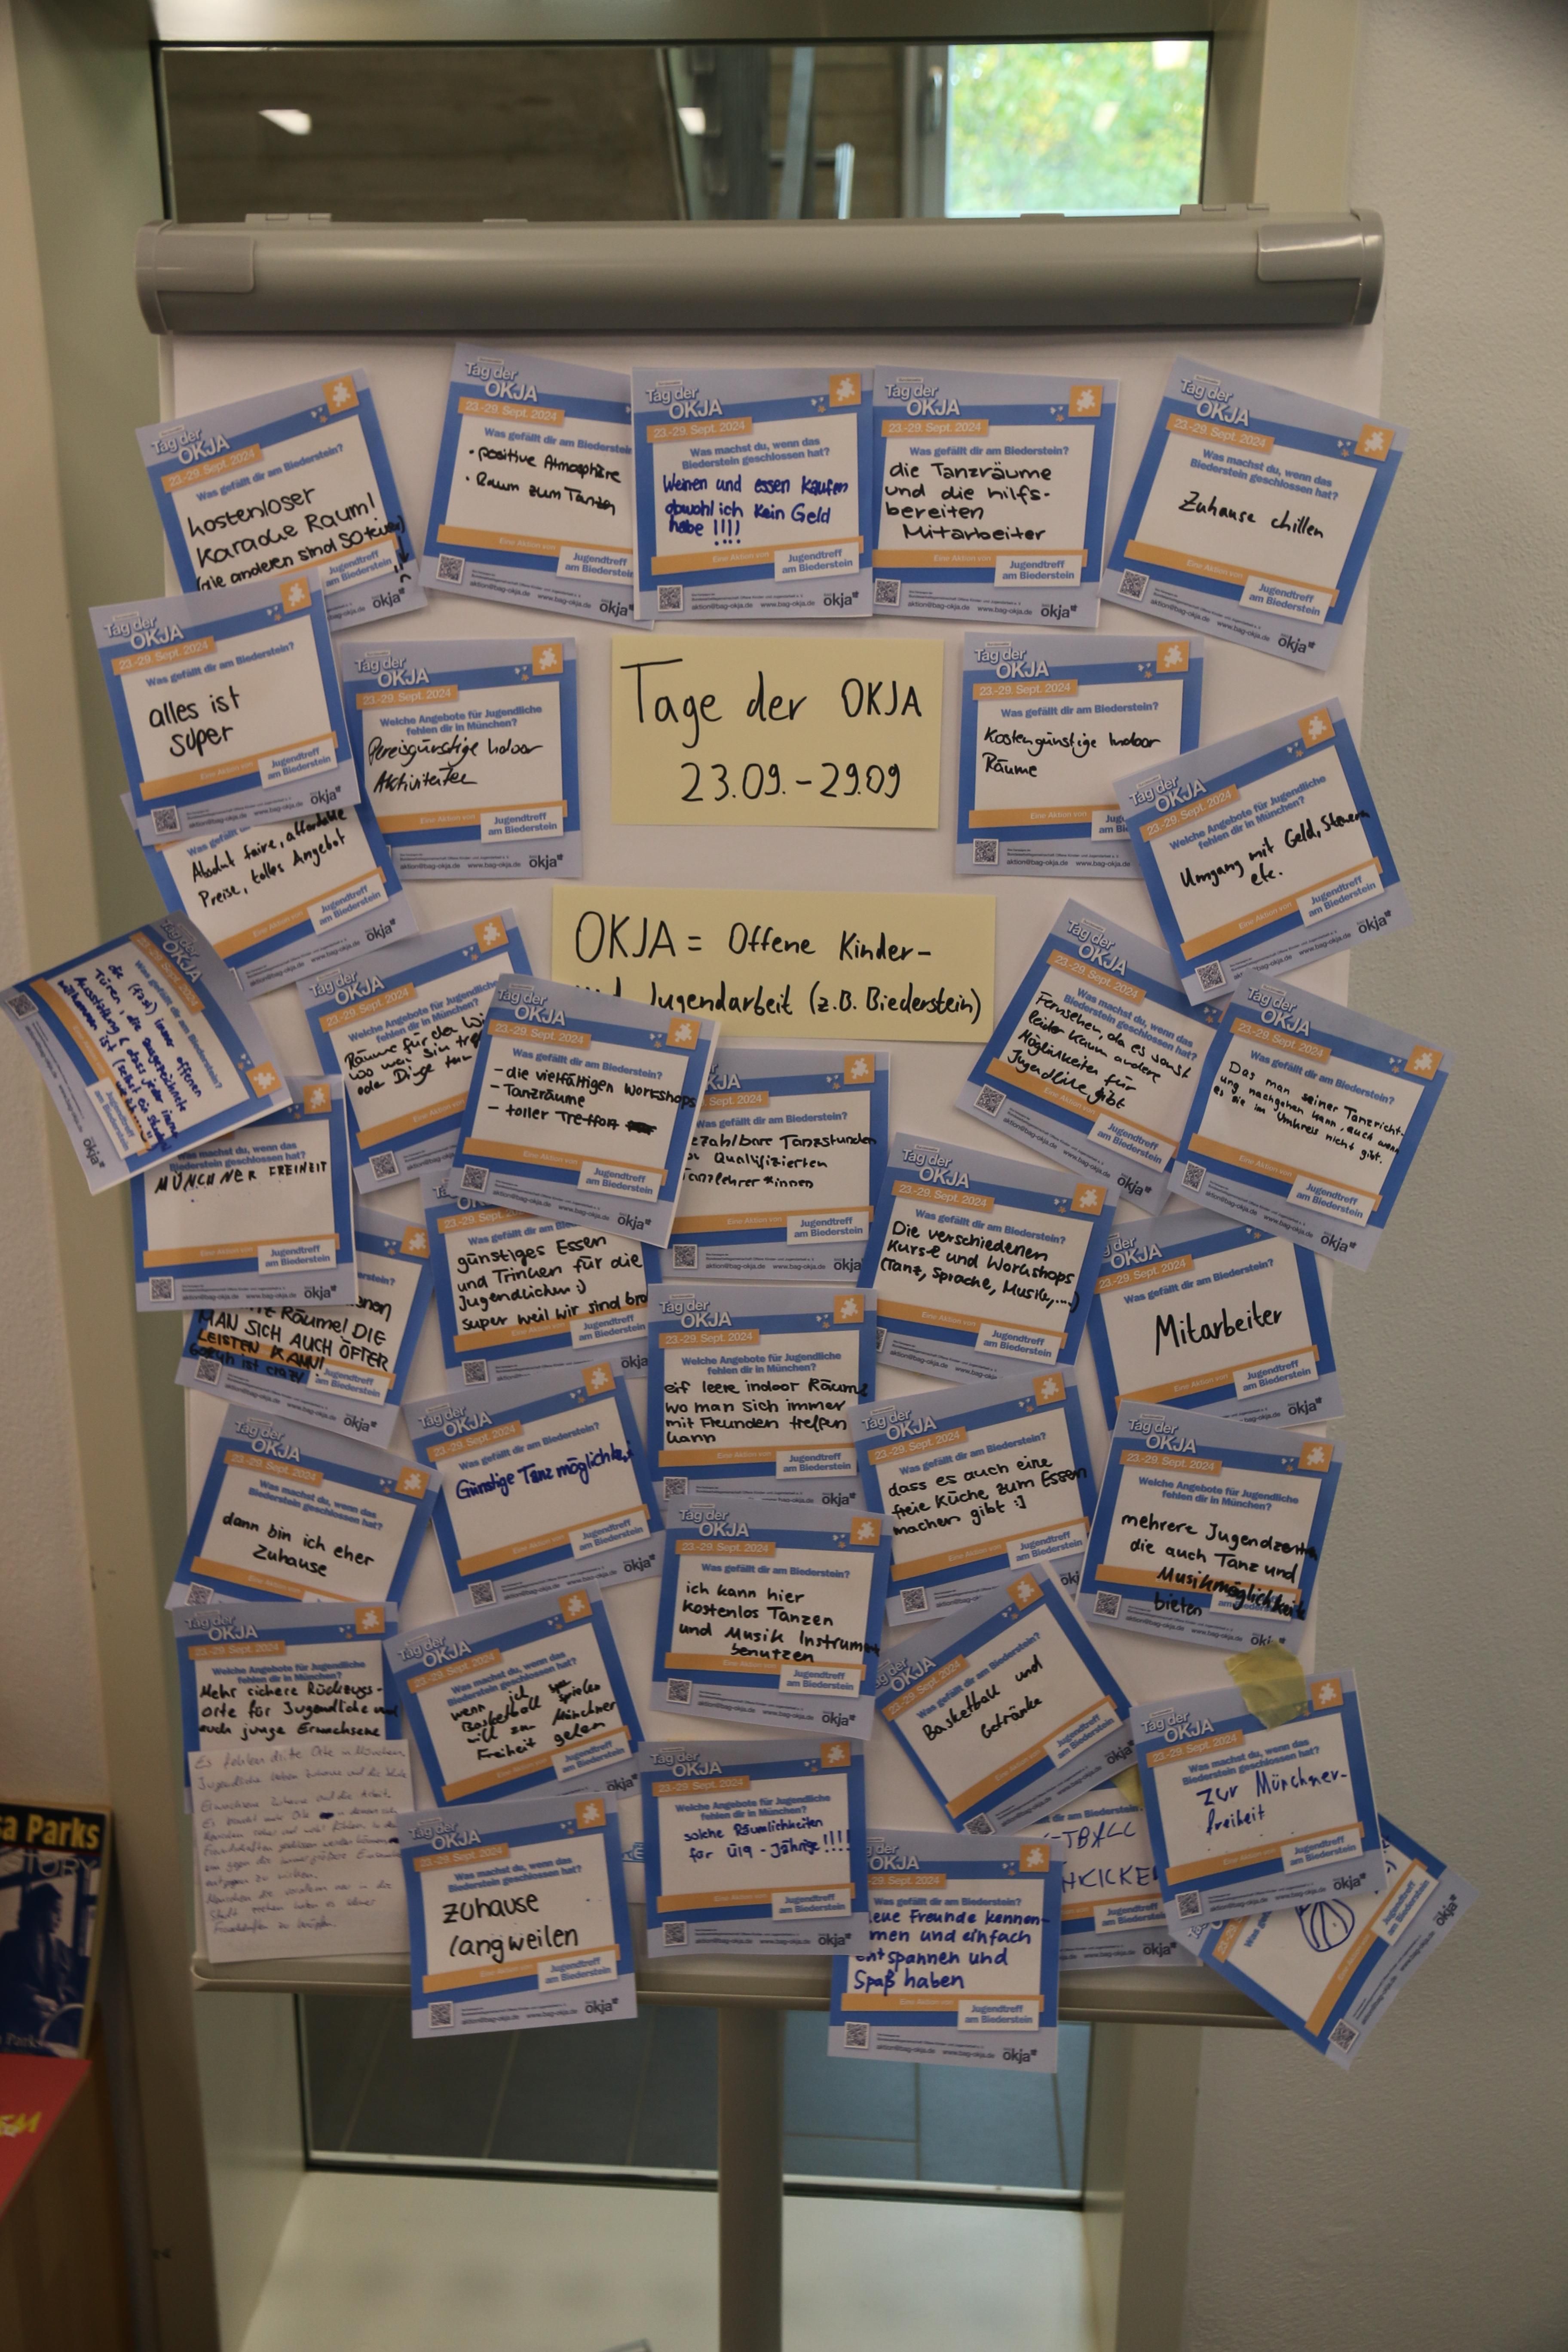 Tag der
OKJA
23.-29. Sept. 2024
Was gefällt dir am Biederstein?
kostenloser
Karaoke Raum!
(alle anderen sind SO teuer)
Jugendtreff
am Biederstein
okja
Tag der
OKJA
23.-29. Sept. 2024
Was gefällt dir am Biederstein
• positive Atmosphäre
• Raum zum Tanzen
Eine Aktion von
Jugendtreff
am Biederstein
aktion@bag-okja.de www.bag-okja.de okja
Tag der
OKJA
23.-29. Sept. 2024
Was machst du, wenn das
Biederstein geschlossen hat?
Weinen und essen kaufen
obwohl ich kein Geld
habe !!!!
Eine Aktion von
Jugendtreff
am Biederstein
aktion@bag-okja.de www.bag-okja.de okja
Tag der
OKJA
23.-29. Sept. 2024
Was gefällt dir am Biederstein?
die Tanzräume
und die hilfs-
bereiten
Mitarbeiter
Eine Aktion von
Jugendtreff
am Biederstein
aktion@bag-okja.de www.bag-okja.de okja
Tag der
OKJA
23.-29. Sept. 2024
Was machst du, wenn das
Biederstein geschlossen hat?
Zuhause chillen
Eine Aktion von
Jugendtreff
am Biederstein
aktion@bag-okja.de www.bag-okja.de okja
Tag der
OKJA
23.-29. Sept. 2024
Was gefällt dir am Biederstein?
alles ist
super
Eine Aktion von
Jugendtreff
am Biederstein
aktion@bag-okja.de www.bag-okja.de okja
Tag der
OKJA
23.-29. Sept. 2024
Welche Angebote für Jugendliche
fehlen dir in München?
Pereisgünstige Indoor
Aktivitäten
Eine Aktion von
Jugendtreff
am Biederstein
aktion@bag-okja.de www.bag-okja.de okja
Tage der OKJA
23.09.-29.09
Tag der
OKJA
23.-29. Sept. 2024
Was gefällt dir am Biederstein?
Kostengünstige Indoor
Räume
Eine Aktion von
Jugendtreff
am B
aktion@bag-okja.de www.bag-okja.de
Tag der
OKJA
23.-29. Sept. 2024
Welche Angebote für Jugendliche
fehlen dir in München?
Umgang mit Geld, Steuern
etc.
Eine Aktion von
Jugendtreff
am Biederstein
okja
Was gefällt
Absolut faire, affordable
Preise, tolles Angebot
Eine Aktion von
Jugendtreff
am Biederstein
okja
OKJA = Offene Kinder-
und Jugendarbeit (z.B. Biederstein)
Tag der
OKJA
23.-29. Sept. 2024
Was gefällt dir am Biederstein?
die (fast) immer offenen
Türen, die ausgezeichnete
Ausstattung & dass jeder immer
willkommen ist
Jugendtreff
am Biederstein
okja
Tag der
OKJA
23.-29. Sept. 2024
Welche Angebote für Jugendliche
fehlen dir in München?
Räume für den Wi
wo man sin tref
oder Dinge tun
Tag der
OKJA
23.-29. Sept. 2024
Was gefällt dir am Biederstein?
- die vielfältigen Workshops
- Tanzräume
- toller Treffort
Eine Aktion von
Jugendtreff
am Biederstein
aktion@bag-okja.de www.bag-okja.de okja
KJA
Sept. 2024
Was gefällt dir am Biederstein?
zahlbare Tanzstunden
Qualifizierten
Tanzlehrer*innen
Eine Aktion von
Jugendtreff
am Biederstein
aktion@bag-okja.de www.bag-okja.de okja
Tag der
OKJA
23.-29. Sept. 2024
Was machst du, wenn das
Biederstein geschlossen hat?
Fernsehen, da es sonst
leider kaum andere
Möglichkeiten für
Jugendliche gibt
Eine Aktion von
Jugendtreff
am Biederstein
okja
Tag der
OKJA
23.-29. Sept. 2024
Was gefällt dir am Biederstein?
Das man seiner Tanzricht-
ung nachgehen kann, auch wenn
es sie im Umkreis nicht gibt.
Eine Aktion von
Jugendtreff
am Biederstein
okja
Was machst du, wenn das
Biederstein geschlossen hat?
MÜNCHNER FREIHEIT
Eine Aktion von
Jugendtreff
am Biederstein
aktion@bag-okja.de www.bag-okja.de okja
23.-29. Sept.
Was gefällt dir am Biederstein
günstiges Essen
und Trinken für die
Jugendlichen :)
super weil wir sind bro
Eine Aktion von
Jugendtreff
am Biederstein
okja
Tag der
OKJA
23.-29. Sept. 2024
Was gefällt dir am Biederstein?
Die verschiedenen
Kurse und Workshops
(Tanz, Sprache, Musik,...)
Eine Aktion von
Jugendtreff
am Biederstein
23.-29. Sept. 2024
Was gefällt dir am Biederstein?
Mitarbeiter
Eine Aktion von
Jugendtreff
am Biederstein
okja
Räume! DIE
MAN SICH AUCH ÖFTER
LEISTEN KANN!
ist crazy
Jugendtreff
am Biederstein
okja
Tag der
OKJA
23.-29. Sept. 2024
Welche Angebote für Jugendliche
fehlen dir in München?
leere indoor Räume
wo man sich immer
mit Freunden treffen
kann
Eine Aktion von
Jugendtreff
am Biederstein
Tag der
OKJA
23.-29. Sept. 2024
Was machst du, wenn das
Biederstein geschlossen hat?
dann bin ich eher
Zuhause
Eine Aktion von
Jugendtreff
am Biederstein
Tag der
OKJA
23.-29. Sept. 2024
Was gefällt dir am Biederstein?
Günstige Tanzmöglichkei
Eine Aktion von
Jugendtreff
am Biederstein
okja
Tag der
OKJA
23.-29. Sept. 2024
Was gefällt dir am Biederstein?
dass es auch eine
freie Küche zum Essen
machen gibt :]
Eine Aktion von
Jugendtreff
am Biederstein
Tag der
OKJA
23.-29. Sept. 2024
Welche Angebote für Jugendliche
fehlen dir in München?
mehrere Jugendzentren
die auch Tanz und
Musikmöglichkeite
bieten
okja
Tag der
OKJA
23.-29. Sept. 2024
Was gefällt dir am Biederstein?
ich kann hier
kostenlos Tanzen
und Musik Instrument
benutzen
Eine Aktion von
Jugendtreff
am Biederstein
aktion@bag-okja.de www.bag-okja.de okja
Tag der
OKJA
23.-29. Sept. 2024
Welche Angebote für Jugendliche
fehlen dir in München?
Mehr sichere Rückzugs-
orte für Jugendliche und
auch junge Erwachsene
Es fehlen dritte Orte in München.
Jugendliche haben Zuhause und die Schule
Erwachsene Zuhause und die Arbeit.
Tag der
OKJA
23.-29. Sept. 2024
Was machst du, wenn das
Biederstein geschlossen hat?
wenn ich
Basketball spielen
will zu Münchner
Freiheit gehen
Eine Aktion von
Jugendtreff
am Biederstein
okja
23.-29. Sept. 2024
Was gefällt dir am Biederstein?
Basketball und
Getränke
Eine Aktion von
Jugendtreff
am Biederstein
okja
Tag der
OKJA
23.-29. Sept. 2024
Was machst du, wenn das
Biederstein geschlossen hat?
zur Münchner-
freiheit
Eine Aktion von
Jugendtreff
am Biederstein
okja
Tag der
OKJA
23.-29. Sept. 2024
Welche Angebote für Jugendliche
fehlen dir in München?
solche Räumlichkeiten
für Ü19-Jährige!!!!
Eine Aktion von
Jugendtreff
am Biederstein
aktion@bag-okja.de www.bag-okja.de okja
Tag der
OKJA
23.-29. Sept. 2024
Was machst du, wenn das
Biederstein geschlossen hat?
zuhause
langweilen
Eine Aktion von
Jugendtreff
am Biederstein
aktion@bag-okja.de www.bag-okja.de okja
OKJA
29. Sept. 2024
Was gefällt dir am Biederstein?
eue Freunde kennen-
rnen und einfach
entspannen und
Spaß haben
Eine Aktion von
Jugendtreff
am Biederstein
aktion@bag-okja.de www.bag-okja.de okja
dir am Biederstein?
TBALL
HKICKE
Jugendtreff
am Biederstein
okja
Jugendtreff
am Biederstein
okja
sa Parks
STORY
Parks